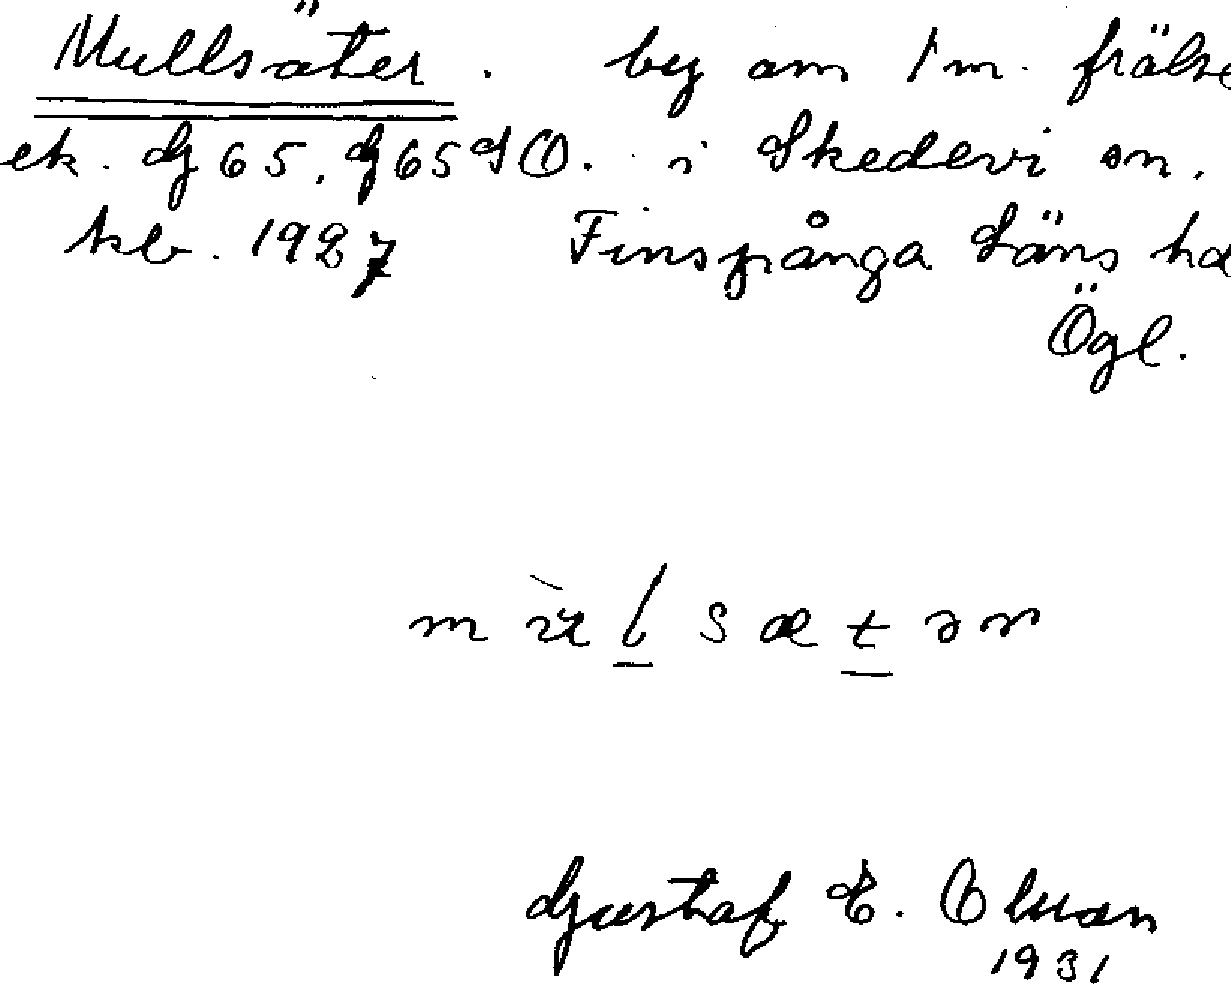 Mullsäter. by om 1 m. frälse
ek. G 65, G 65 SO. i Skedevi sn.
kb. 1927 Finspånga Läns hd
Ögl.
mùlsætər
Gustaf E.
1931